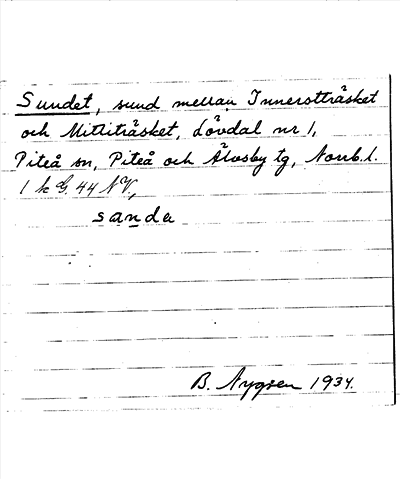 Sundet, sund mellan Innerstträsket
och Mittiträsket, Lövdal nr 1,
Piteå sn, Piteå och Älvsby tg, Norrb. l.
1 k G. 44 NV,
sanda
B. Nygren 1934.